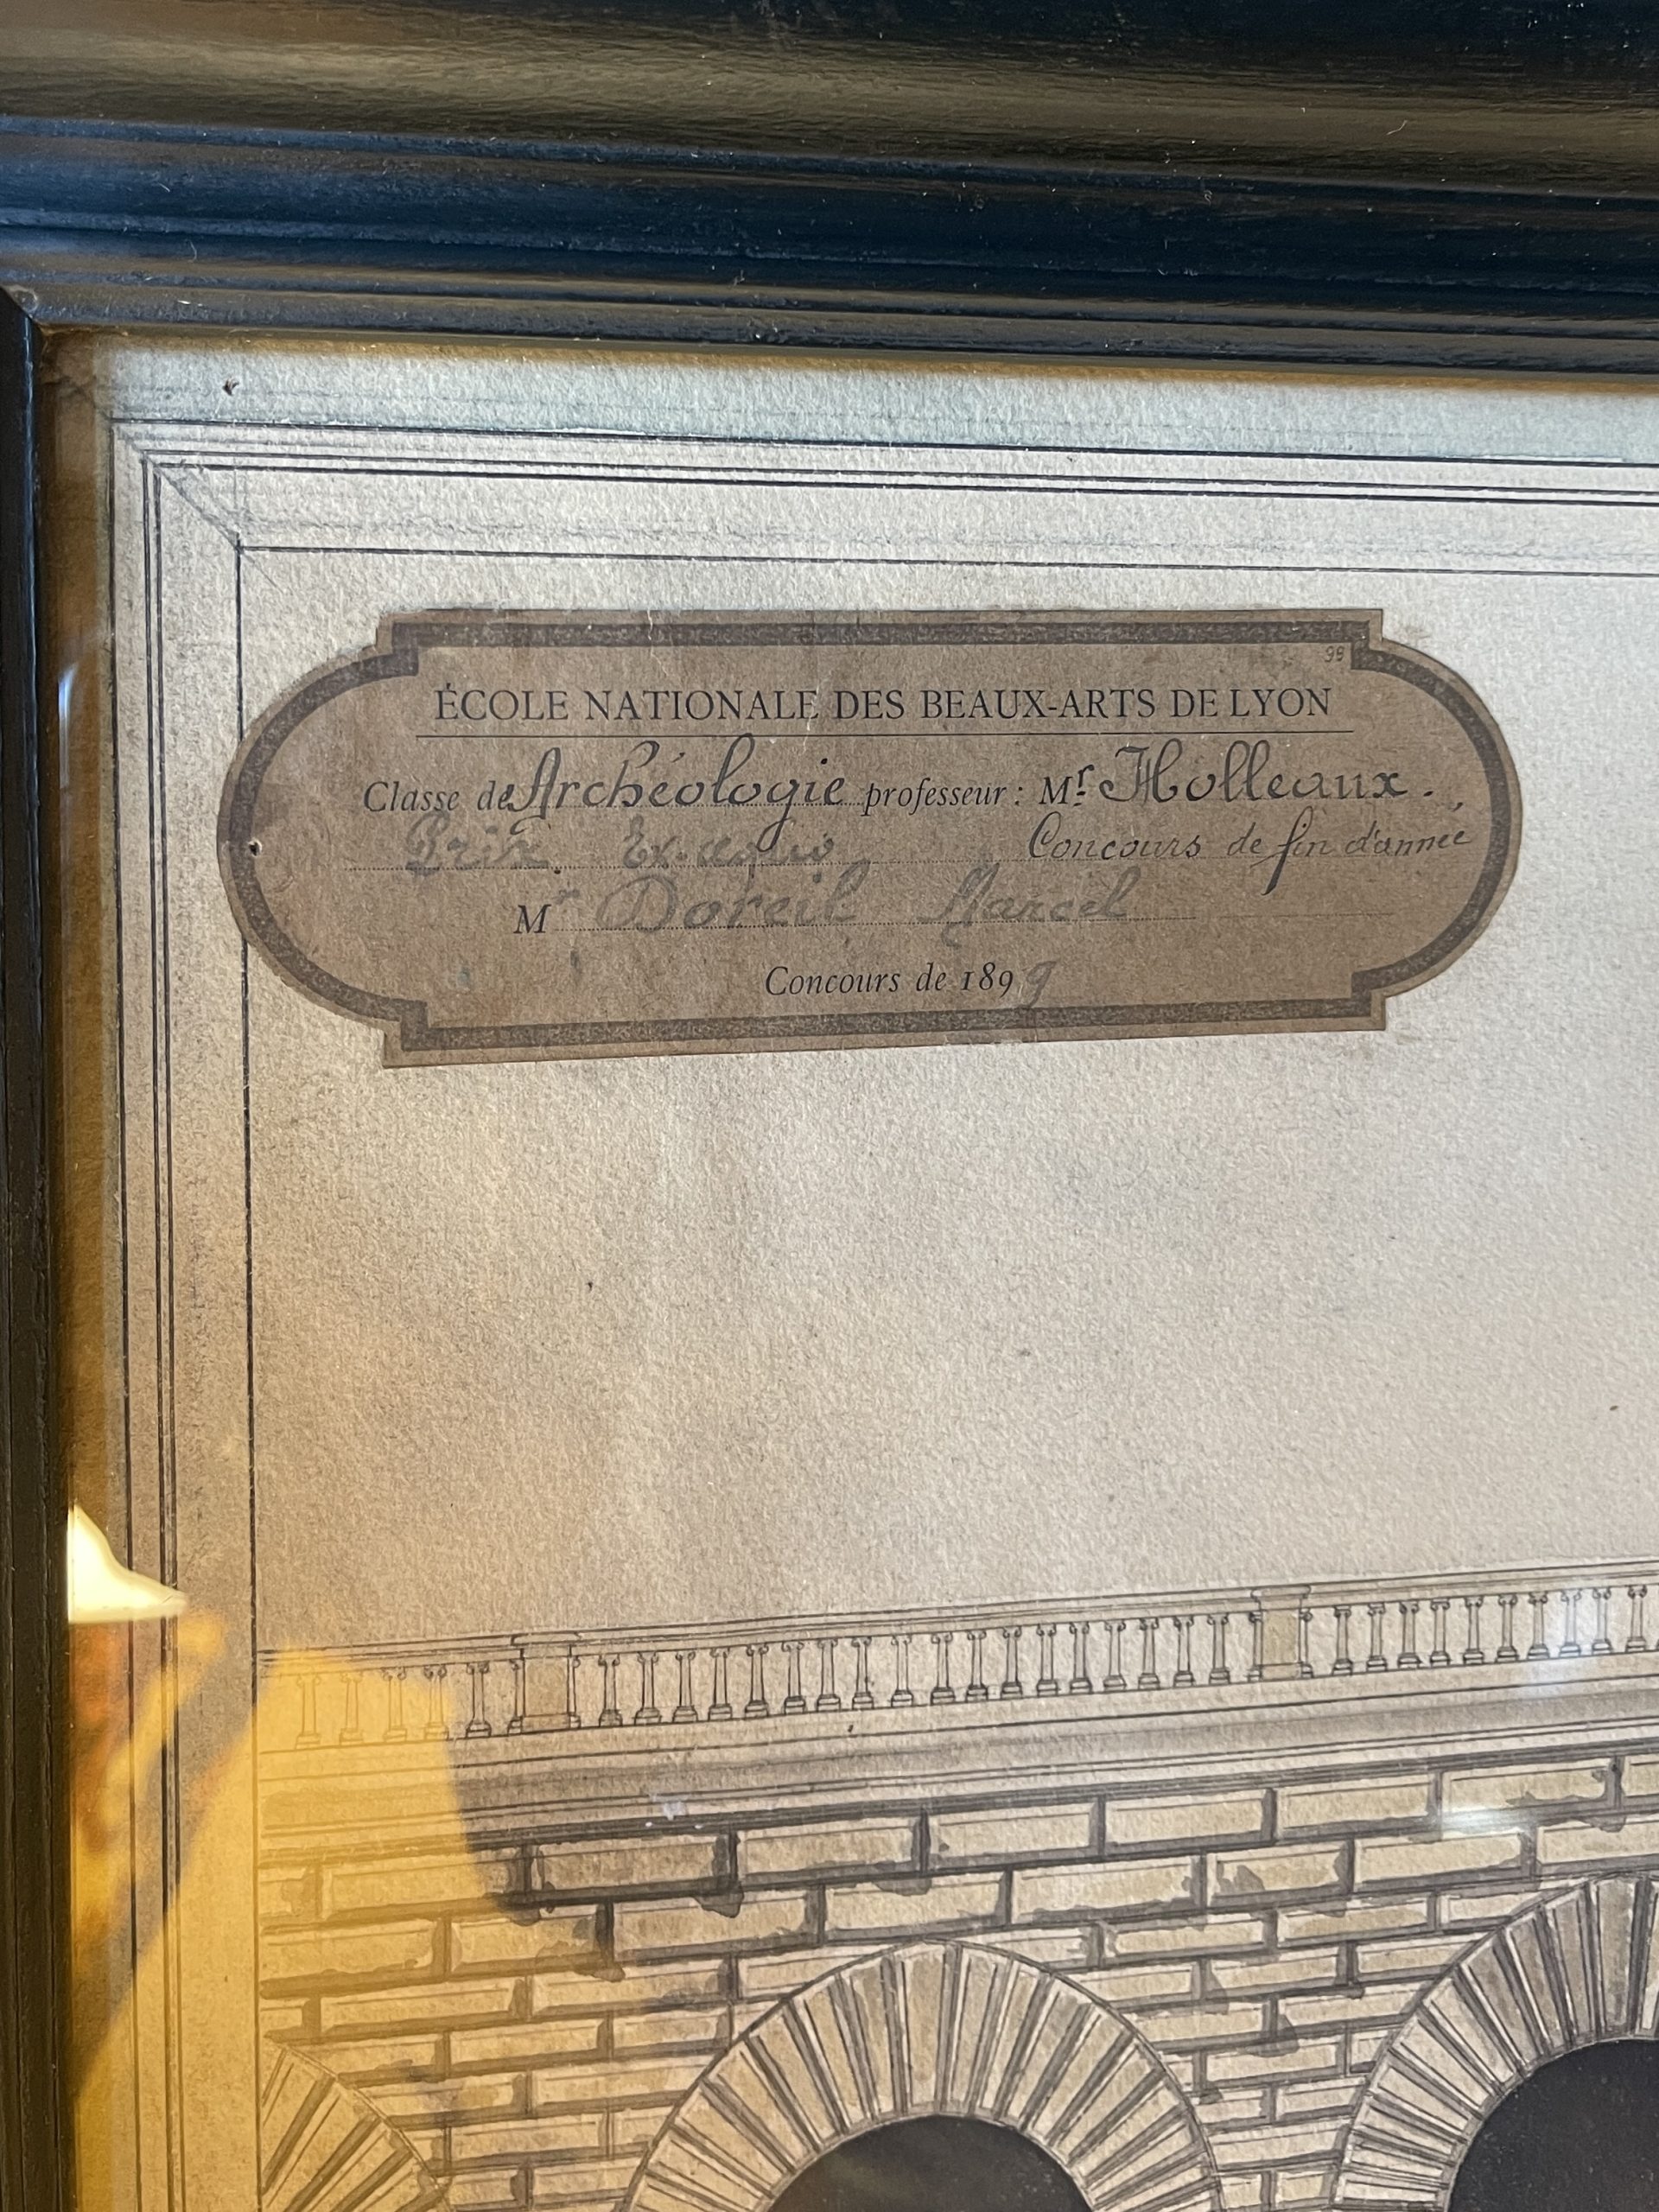 99
ÉCOLE NATIONALE DES BEAUX-ARTS DE LYON
Classe de Archéologie professeur: Mr Holleaux.
Prix Ex-aequo Concours de fin d'année
Mr Doreil Marcel
Concours de 1899